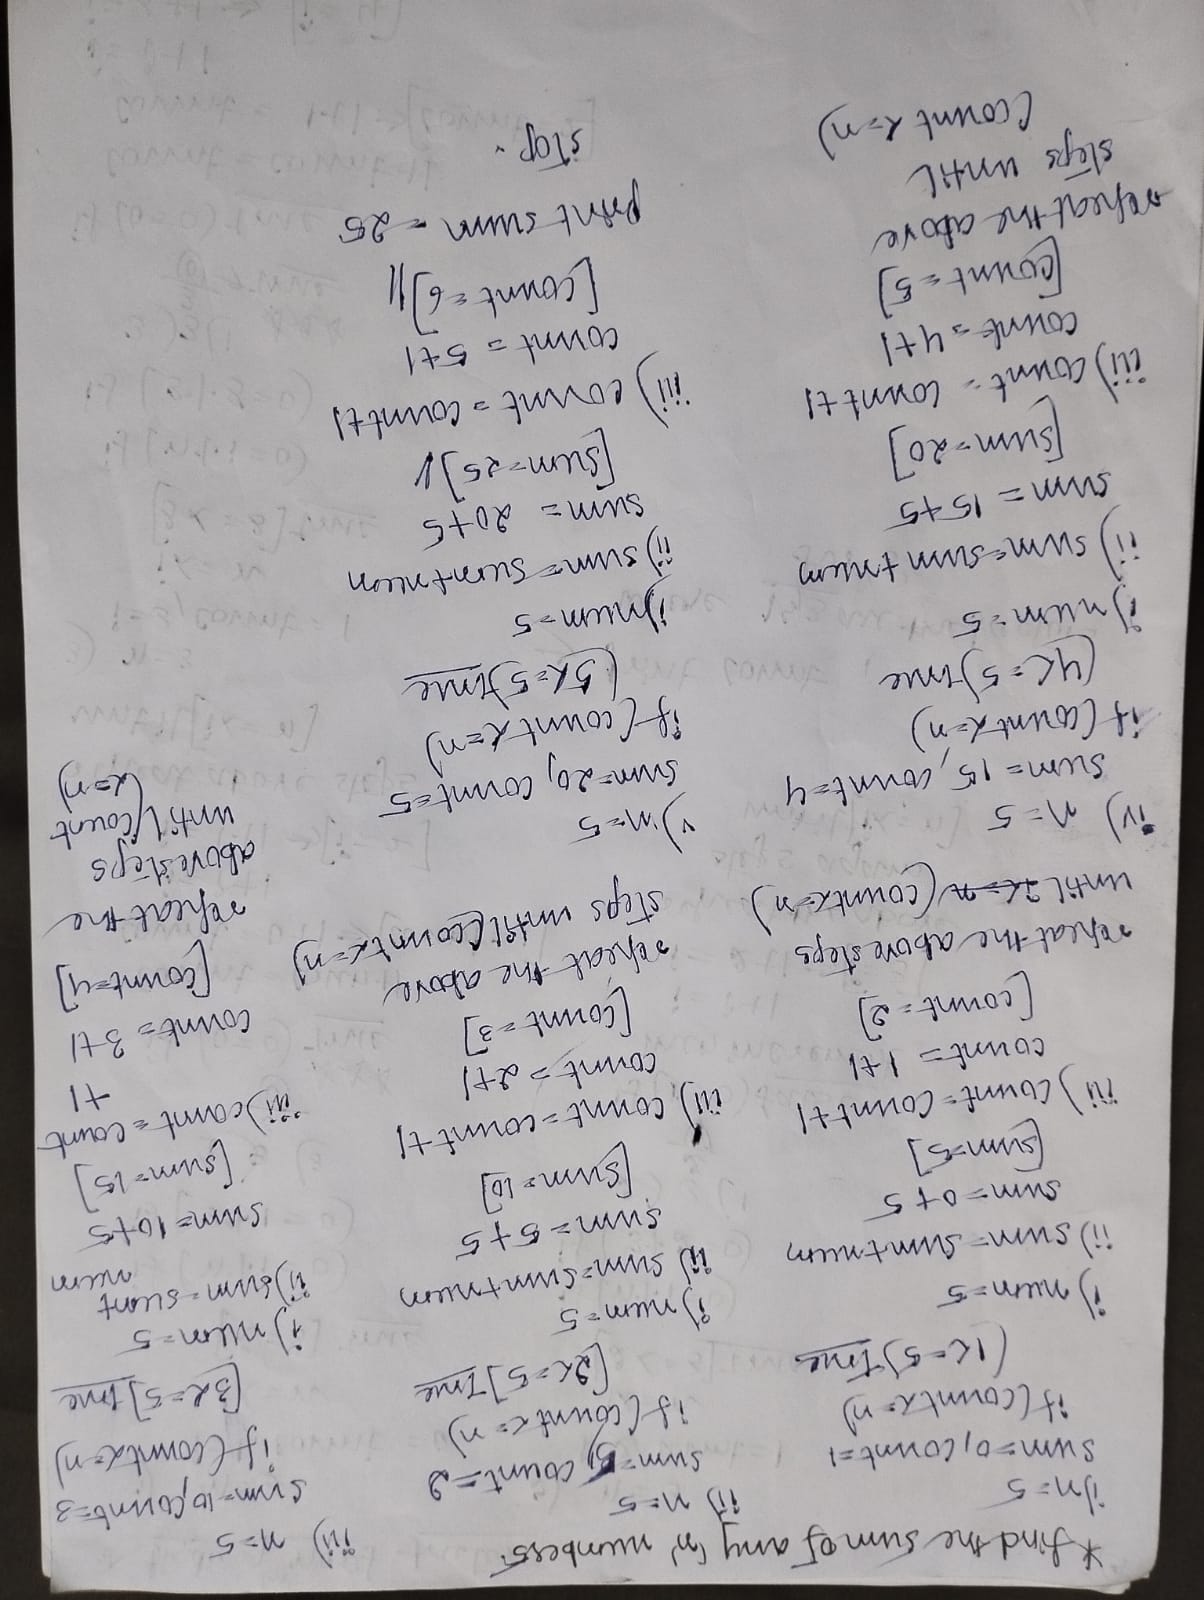 * find the sum of any 'n' numbers.
i) n=5
sum=0, count=1
if (count<=n)
(1<=5) True
i) num=5
ii) sum=sum+num
sum=0+5
[sum=5]
iii) count=count+1
count=1+1
[count=2]
repeat the above steps
until (count<=n)
ii) n=5
sum=5, count=2
if (count<=n)
[2<=5] True
i) num=5
ii) sum=sum+num
sum=5+5
[sum=10]
iii) count=count+1
count=2+1
[count=3]
repeat the above
steps until (count<=n)
iii) n=5
sum=10, count=3
if (count<=n)
[3<=5] true
i) num=5
ii) sum=sum+
num
sum=10+5
[sum=15]
iii) count=count
+1
count=3+1
[count=4]
repeat the
above steps
until (count
<=n)
iv) n=5
sum=15, count=4
if (count<=n)
(4<=5) true
i) num=5
ii) sum=sum+num
sum=15+5
[sum=20]
iii) count=count+1
count=4+1
[count=5]
repeat the above
steps until
(count<=n)
v) n=5
sum=20, count=5
if (count<=n)
(5<=5) true
i) num=5
ii) sum=sum+num
sum=20+5
[sum=25]//
iii) count=count+1
count=5+1
[count=6]//
print sum = 25
stop.